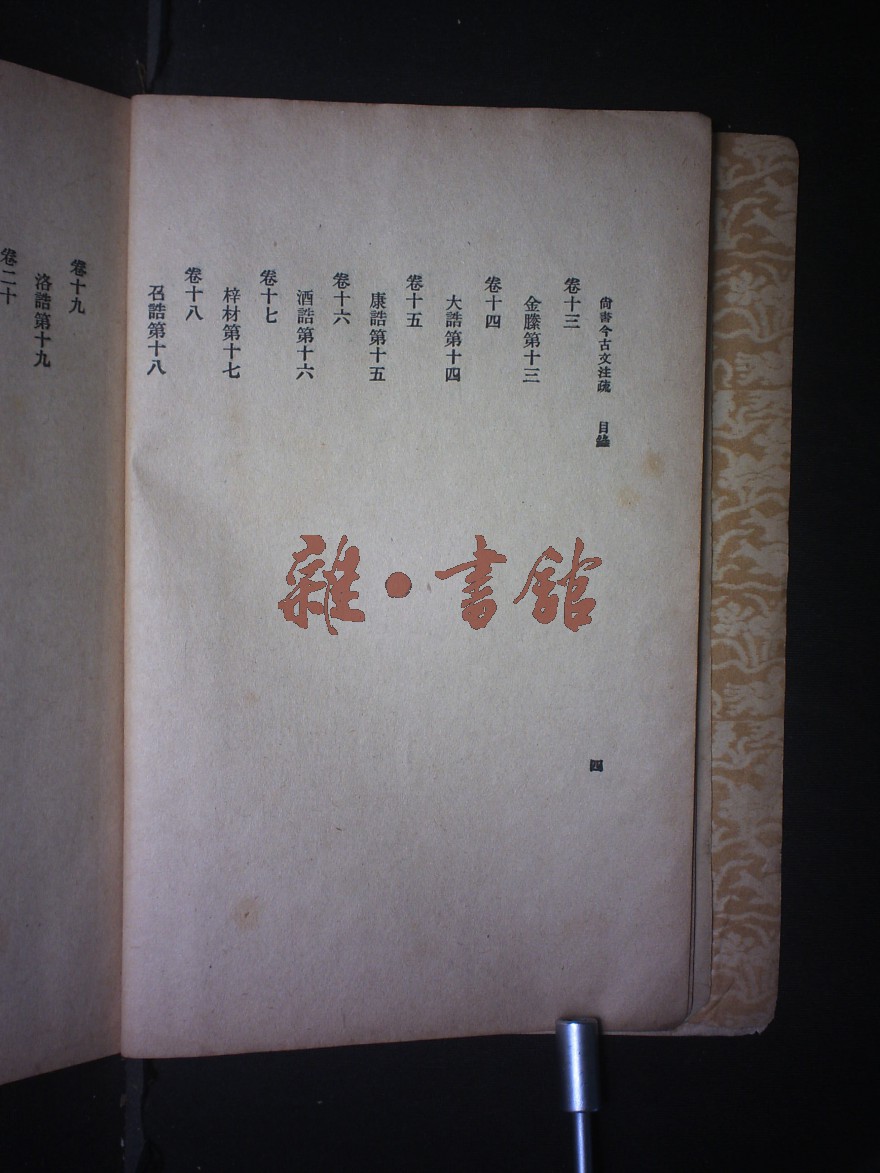 尙書今古文注疏 目錄
四
卷十三
金縢第十三
卷十四
大誥第十四
卷十五
康誥第十五
卷十六
酒誥第十六
卷十七
梓材第十七
卷十八
召誥第十八
卷十九
洛誥第十九
卷二十
雜·書館